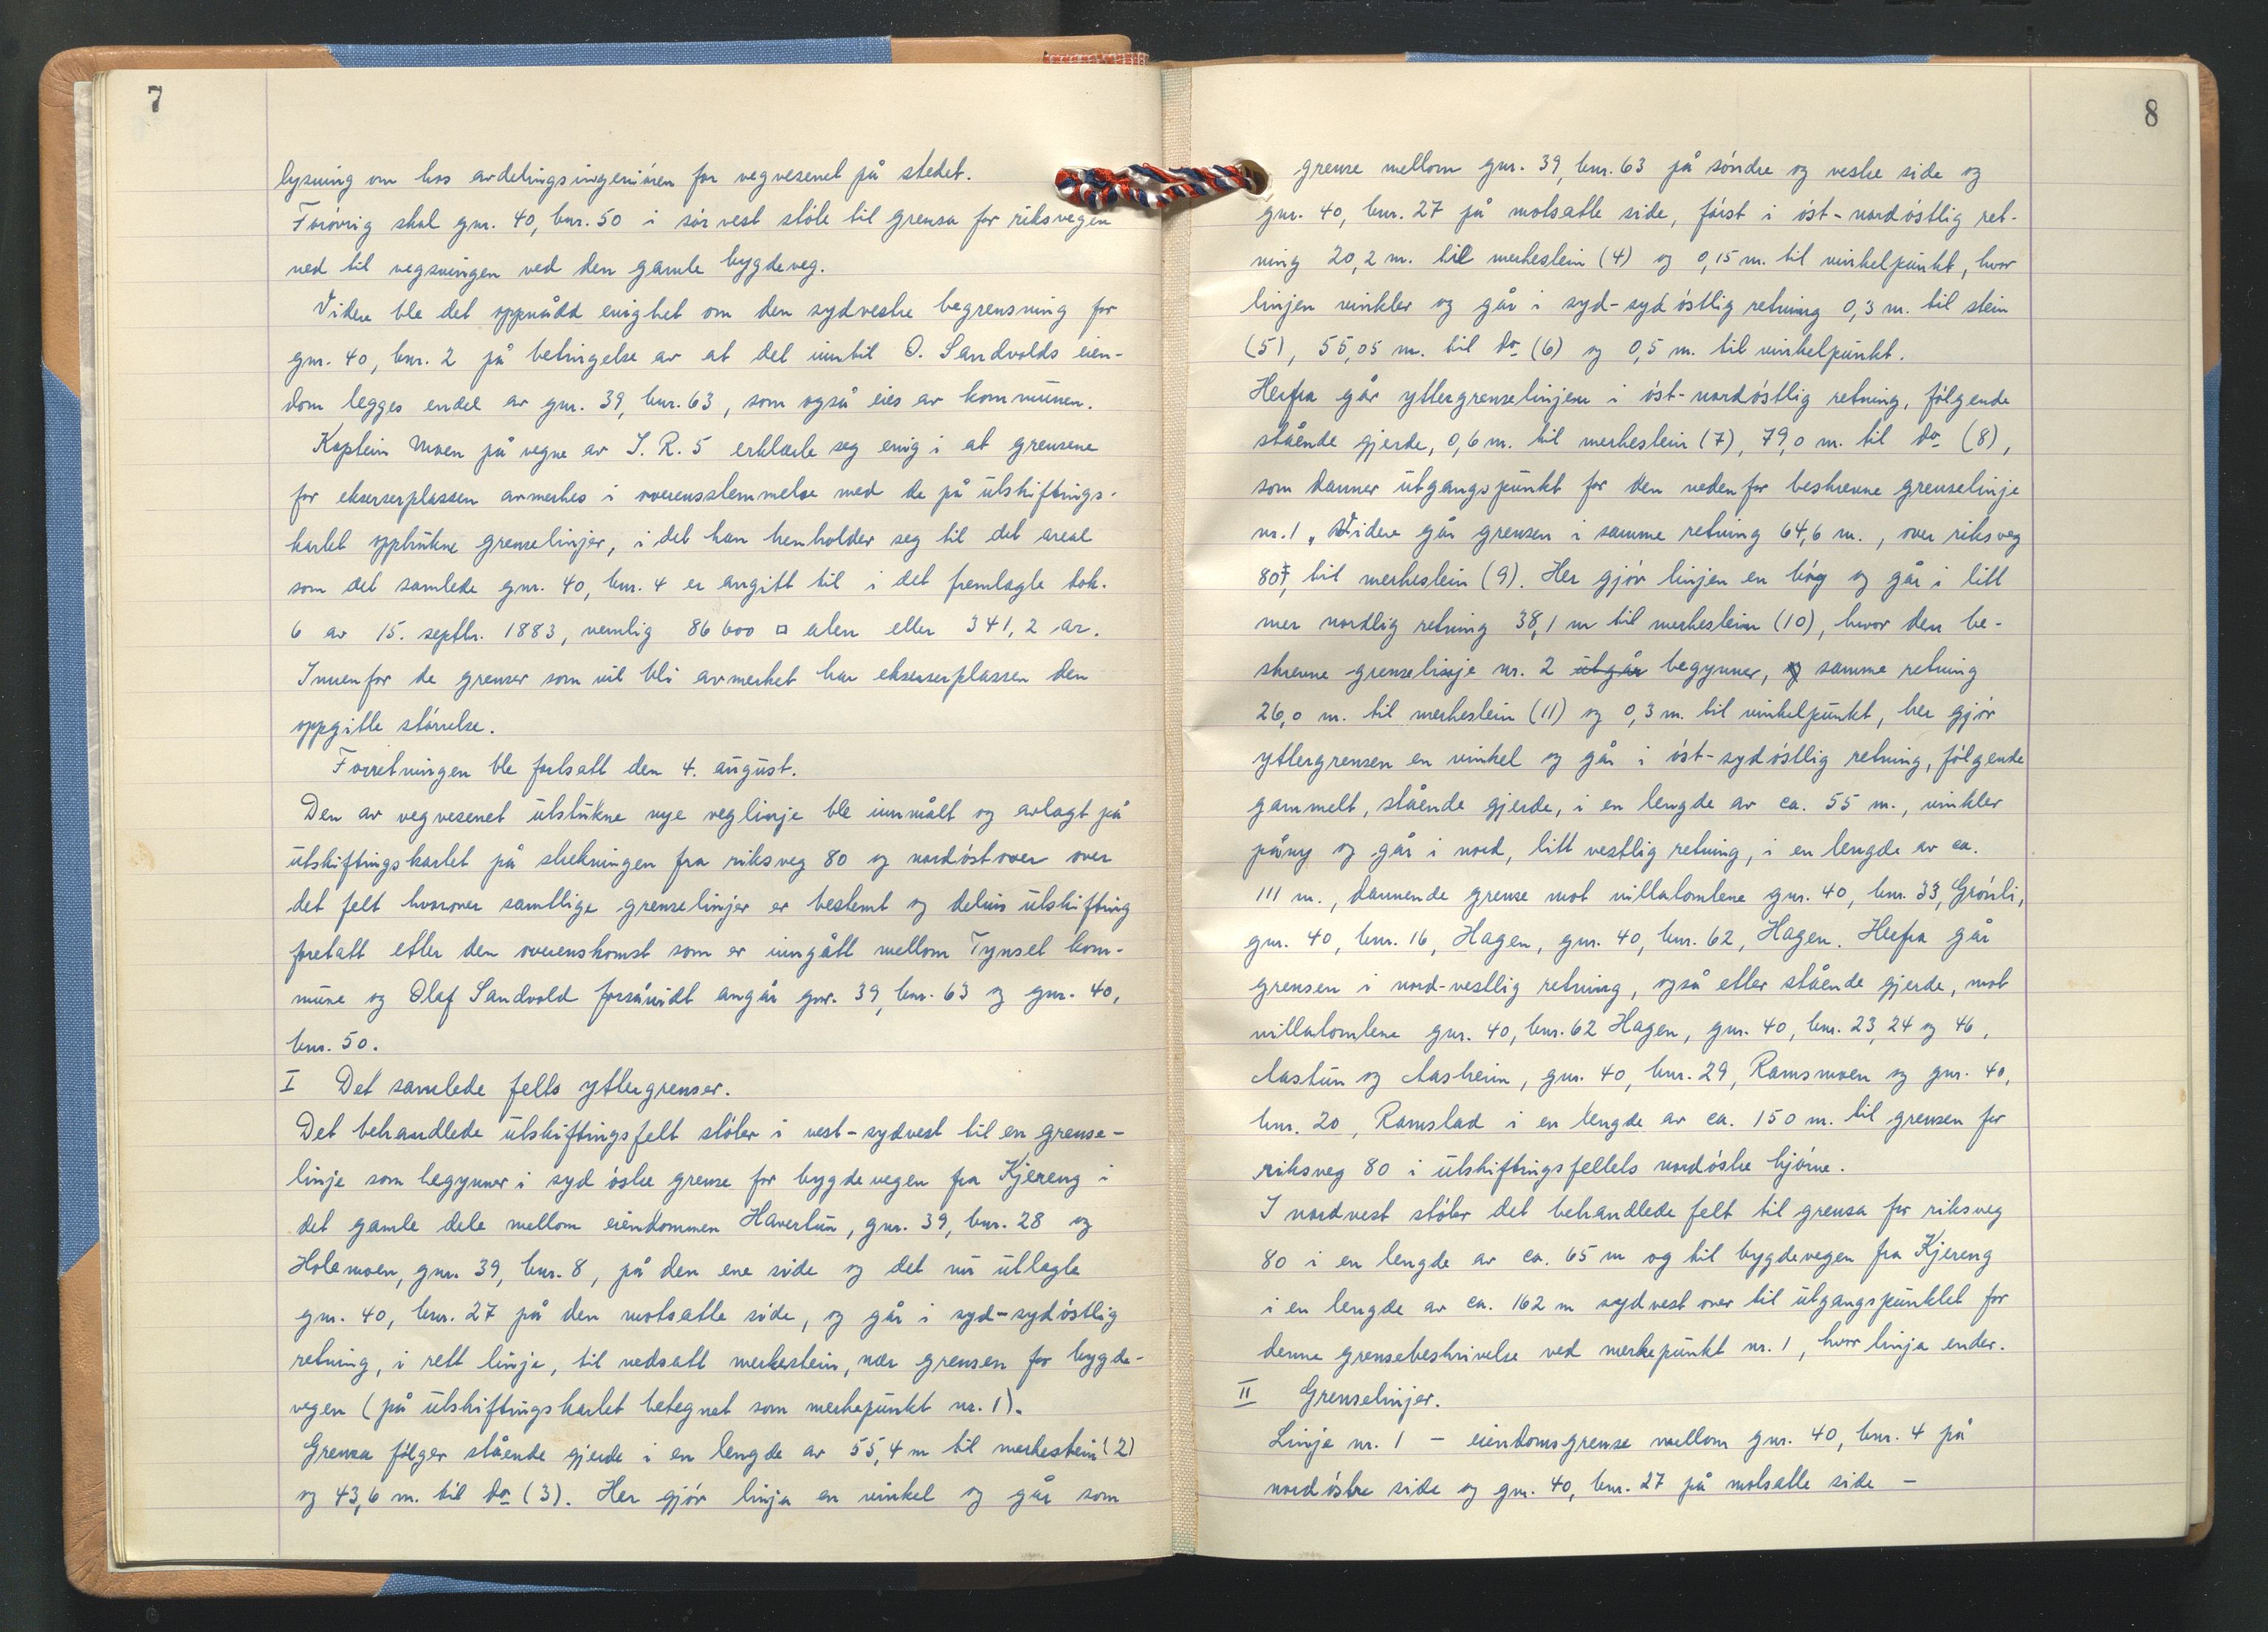 7
lysning om hos avdelingsingeniören for vegvesenet på stedet.
Forövrig skal gnr. 40, bnr. 50 i sör vest stöte til grensa for riksvegen
ned til vegsvingen ved den gamle bygdeveg.
Videre ble det oppnådd enighet om den sydvestre begrensning for
gnr. 40, bnr. 2 på betingelse av at det inntil O. Sandvolds eien-
dom legges endel av gnr. 39, bnr. 63, som også eies av kommunen.
Kaptein Moen på vegne av I. R. 5 erklærte seg enig i at grensene
for ekserserplassen avmerkes i overensstemmelse med de på utskiftings-
kartet opptrukne grenselinjer, i det han henholder seg til det areal
som det samlede gnr. 40, bnr. 4 er angitt til i det fremlagte dok.
6 av 15. septbr. 1883, nemlig 86 600 □ alen eller 341,2 ar.
Innenfor de grenser som vil bli avmerket har ekserserplassen den
oppgitte störrelse.
Forretningen ble fortsatt den 4. august.
Den av vegvesenet utstukne nye veglinje ble innmålt og avlagt på
utskiftingskartet på strekningen fra riksveg 80 og nordöstover over
det felt hvorover samtlige grenselinjer er bestemt og delvis utskifting
foretatt etter den overenskomst som er inngått mellom Tynset kom-
mune og Olaf Sandvold forsåvidt angår gnr. 39, bnr. 63 og gnr. 40,
bnr. 50.
I Det samlede felts yttergrenser.
Det behandlede utskiftingsfelt stöter i vest-sydvest til en grense-
linje som begynner i syd östre grense for bygdevegen fra Kjereng i
det gamle dele mellom eiendommen Havertun, gnr. 39, bnr. 28 og
Holemoen, gnr. 39, bnr. 8, på den ene side og det nu utlagte
gnr. 40, bnr. 27 på den motsatte side, og går i syd-sydöstlig
retning, i rett linje, til nedsatt merkestein, nær grensen for bygde-
vegen (på utskiftingskartet betegnet som merkepunkt nr. 1).
Grensa fölger stående gjerde i en lengde av 55,4 m til merkestein (2)
og 43,6 m. til do (3). Her gjör linja en vinkel og går som
8
grense mellom gnr. 39, bnr. 63 på söndre og vestre side og
gnr. 40, bnr. 27 på motsatte side, först i öst-nordöstlig ret-
ning 20,2 m. til merkestein (4) og 0,15 m. til vinkelpunkt, hvor
linjen vinkler og går i syd-syd östlig retning 0,3 m. til stein
(5), 55,05 m. til do (6) og 0,5 m. til vinkelpunkt.
Herfra går yttergrenselinjen i öst-nordöstlig retning, fölgende
stående gjerde, 0,6 m. til merkestein (7), 79,0 m. til do (8),
som danner utgangspunkt for den nedenfor beskrevne grenselinje
nr. 1, Videre går grensen i samme retning 64,6 m., over riksveg
80, til merkestein (9). Her gjör linjen en bög og går i litt
mer nordlig retning 38,1 m til merkestein (10), hvor den be-
skrevne grenselinje nr. 2 utgår begynner, og samme retning
26,0 m. til merkestein (11) og 0,3 m. til vinkelpunkt, her gjör
yttergrensen en vinkel og går i öst-sydöstlig retning, fölgende
gammelt, stående gjerde, i en lengde av ca. 55 m., vinkler
påny og går i nord, litt vestlig retning, i en lengde av ca.
111 m., dannende grense mot villatomtene gnr. 40, bnr. 33, Grönli,
gnr. 40, bnr. 16, Hagen, gnr. 40, bnr. 62, Hagen. Herfra går
grensen i nord-vestlig retning, også etter stående gjerde, mot
villatomtene gnr. 40, bnr. 62 Hagen, gnr. 40, bnr. 23, 24 og 46,
Aastun og Aasheim, gnr. 40, bnr. 29, Ramsmoen og gnr. 40,
bnr. 20, Ramstad i en lengde av ca. 150 m. til grensen for
riksveg 80 i utskiftingsfeltets nordöstre hjörne.
I nordvest stöter det behandlede felt til grensa for riksveg
80 i en lengde av ca. 65 m og til bygdevegen fra Kjereng
i en lengde av ca. 162 m sydvest over til utgangspunktet for
denne grensebeskrivelse ved merkepunkt nr. 1, hvor linja ender.
II Grenselinjer.
Linje nr. 1 – eiendomsgrense mellom gnr. 40, bnr. 4 på
nordöstre side og gnr. 40, bnr. 27 på motsatte side –